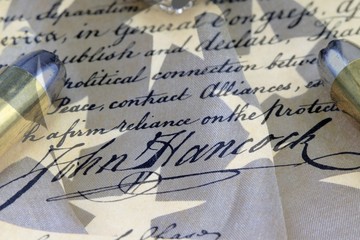 Separation
erica, in General Congress, A
publish and declare, Tha
political connection betwe
Peace, contract Alliances, es
h a firm reliance on the protect
John Hancock